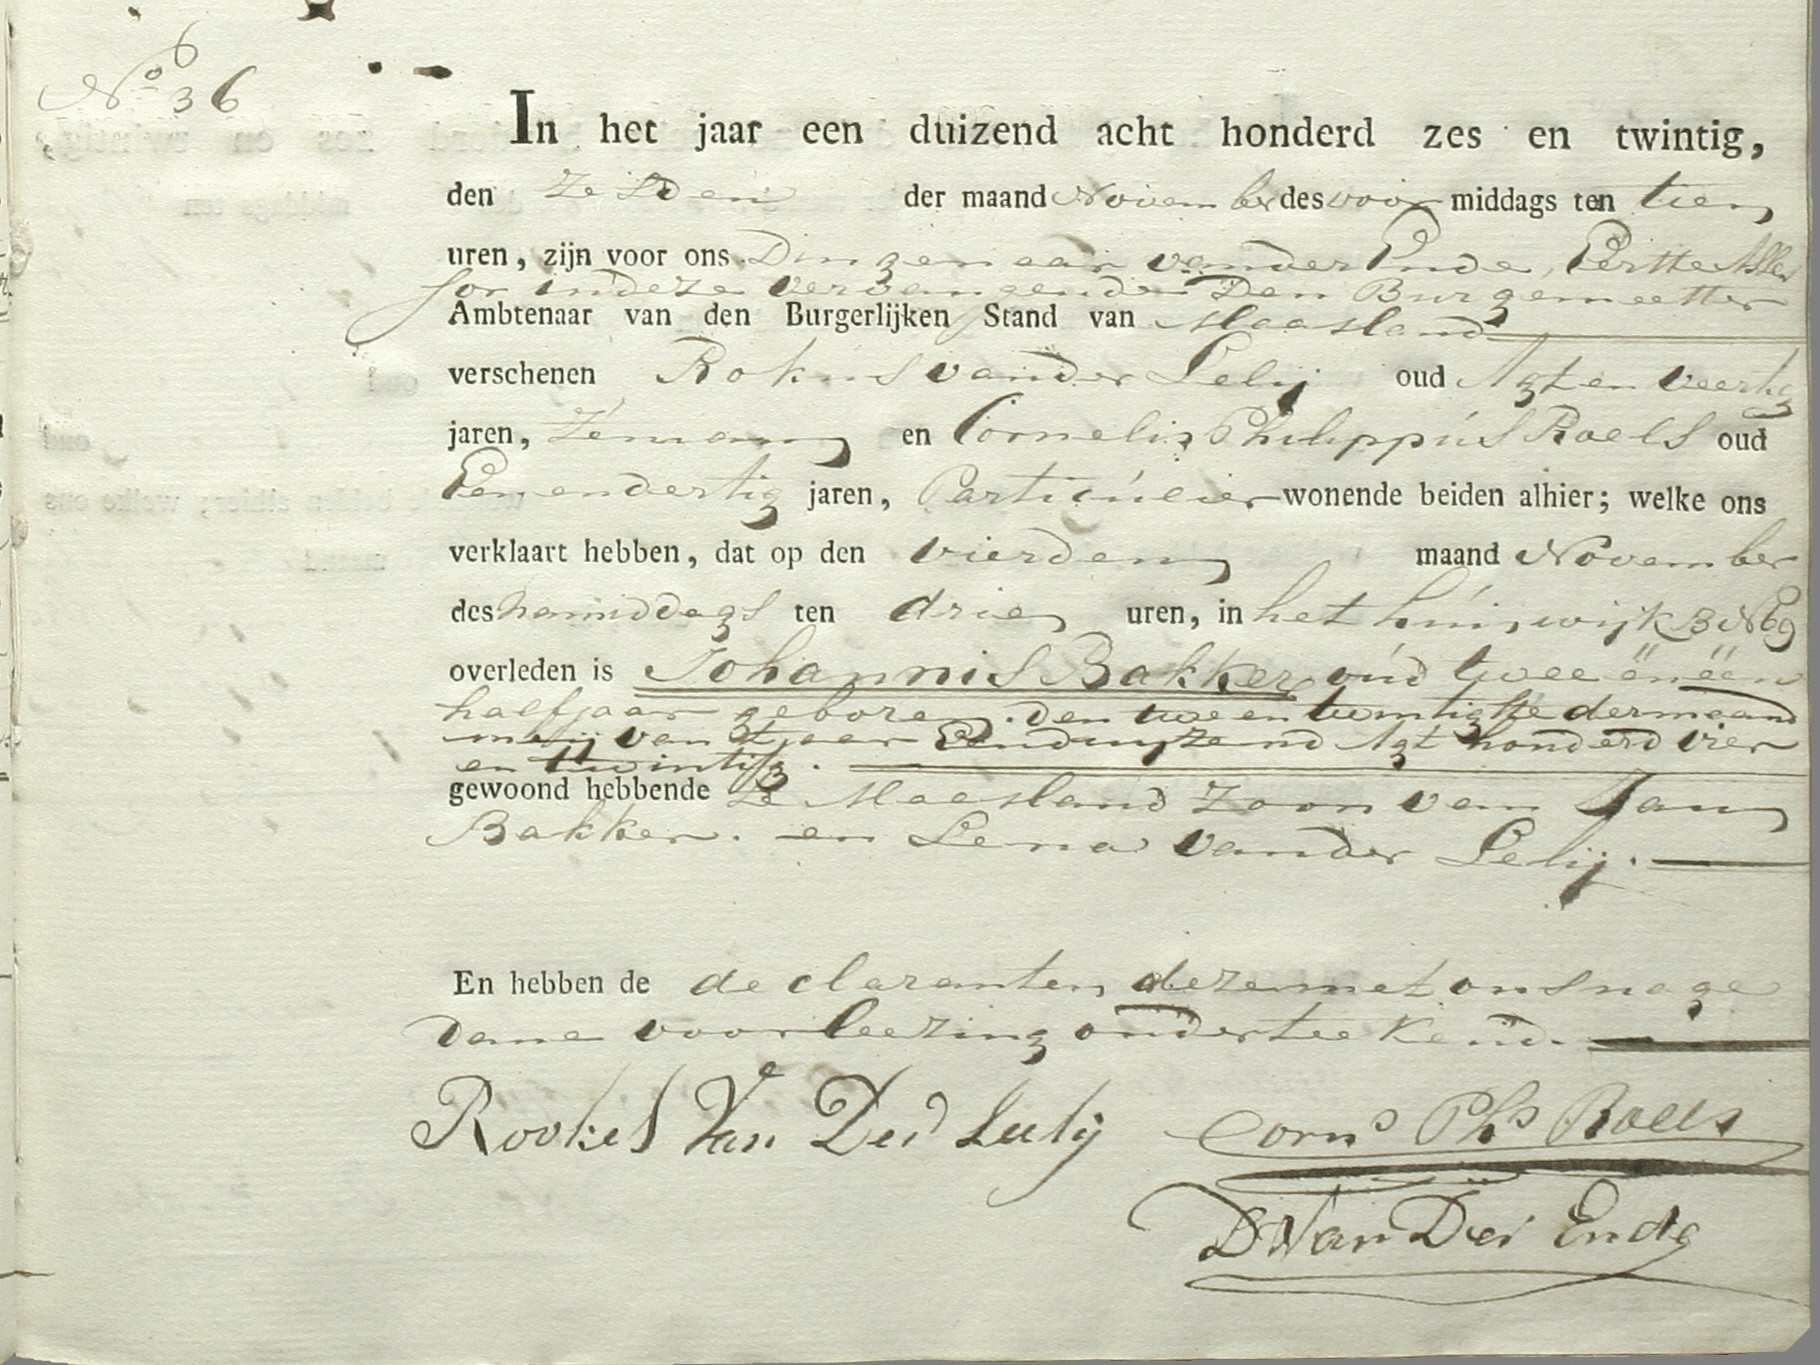 6
No 36
In het jaar een duizend acht honderd zes en twintig,
den Zesden der maand November des voor middags ten tien
uren, zijn voor ons Dingenaar vander Ende, Eerste Asses
sor indeze vervangende Den Burgemeester
Ambtenaar van den Burgerlijken Stand van Maasland
verschenen Rokus vander Lelij oud Agt en veertig
jaren, Zeman en Cornelis Philippús Roels oud
Een en dertig jaren, Particúlier wonende beiden alhier; welke ons
verklaart hebben, dat op den vierden maand November
des namiddags ten drie uren, in het húis, wijk B No 69
overleden is Johannis Bakker oúd twee ën ëën
half jaar geboren den twe en twintigste der maand
meij van t jaar Eenduyzend Agt honderd vier
en twintig.
gewoond hebbende te Maasland Zoon van Jan
Bakker. en Lena vander Lelij.
En hebben de declaranten deze met ons nage
dane voorleezing onderteekend.
Rookes Van Der Lelij Corns Phs Roels
D Van Der Ende